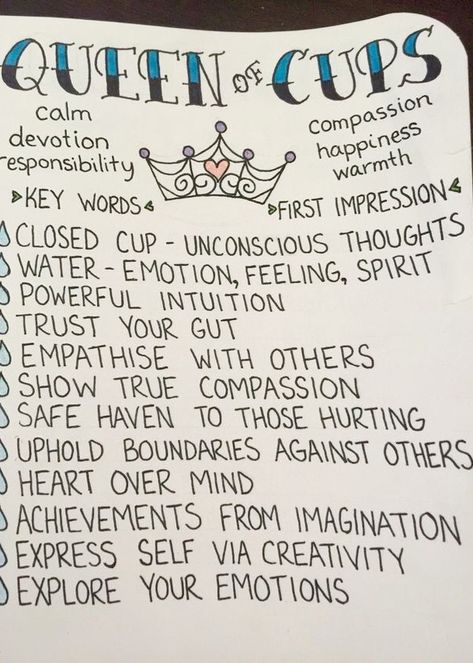 QUEEN OF CUPS
calm
devotion
responsibility
KEY WORDS
compassion
happiness
warmth
FIRST IMPRESSION
CLOSED CUP - UNCONSCIOUS THOUGHTS
WATER - EMOTION, FEELING, SPIRIT
POWERFUL INTUITION
TRUST YOUR GUT
EMPATHISE WITH OTHERS
SHOW TRUE COMPASSION
SAFE HAVEN TO THOSE HURTING
UPHOLD BOUNDARIES AGAINST OTHERS
HEART OVER MIND
ACHIEVEMENTS FROM IMAGINATION
EXPRESS SELF VIA CREATIVITY
EXPLORE YOUR EMOTIONS